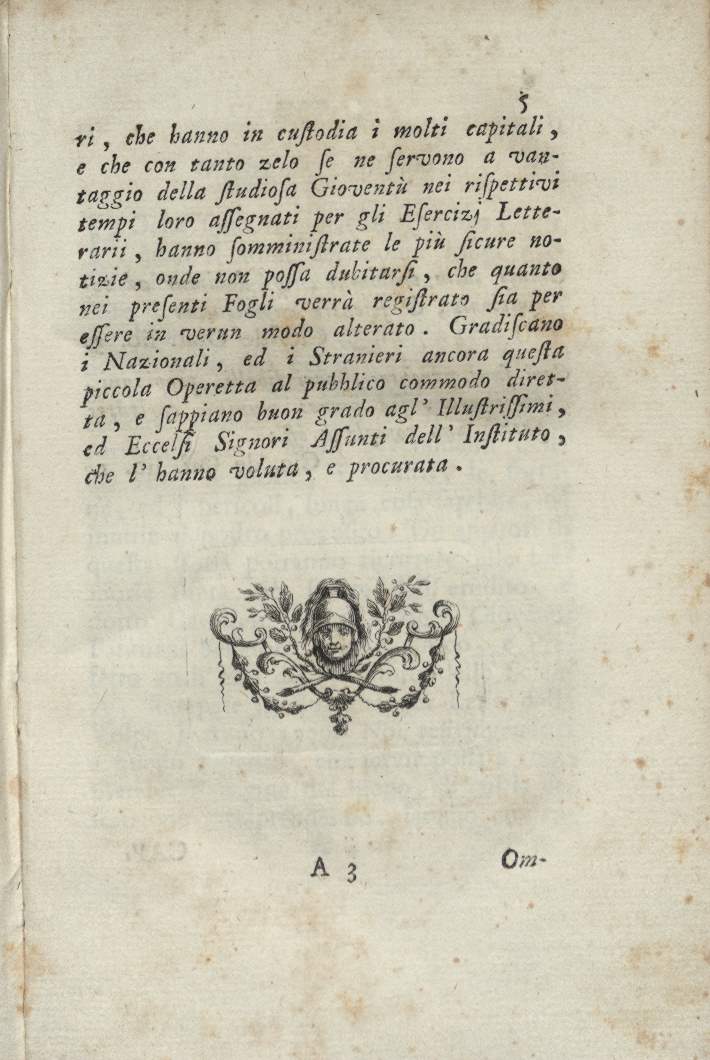 5
ri, che hanno in cuſtodia i molti capitali,
e che con tanto zelo ſe ne ſervono a van-
taggio della ſtudioſa Gioventù nei riſpettivi
tempi loro aſſegnati per gli Eſercizj Lette-
rarii, hanno ſomminiſtrate le più ſicure no-
tizie, onde non poſſa dubitarſi, che quanto
nei preſenti Fogli verrà regiſtrato ſia per
eſſere in verun modo alterato. Gradiſcano
i Nazionali, ed i Stranieri ancora queſta
piccola Operetta al pubblico commodo diret-
ta, e ſappiano buon grado agl' Illuſtriſſimi,
ed Eccelſi Signori Aſſunti dell' Inſtituto,
che l' hanno voluta, e procurata.
A 3
Om-